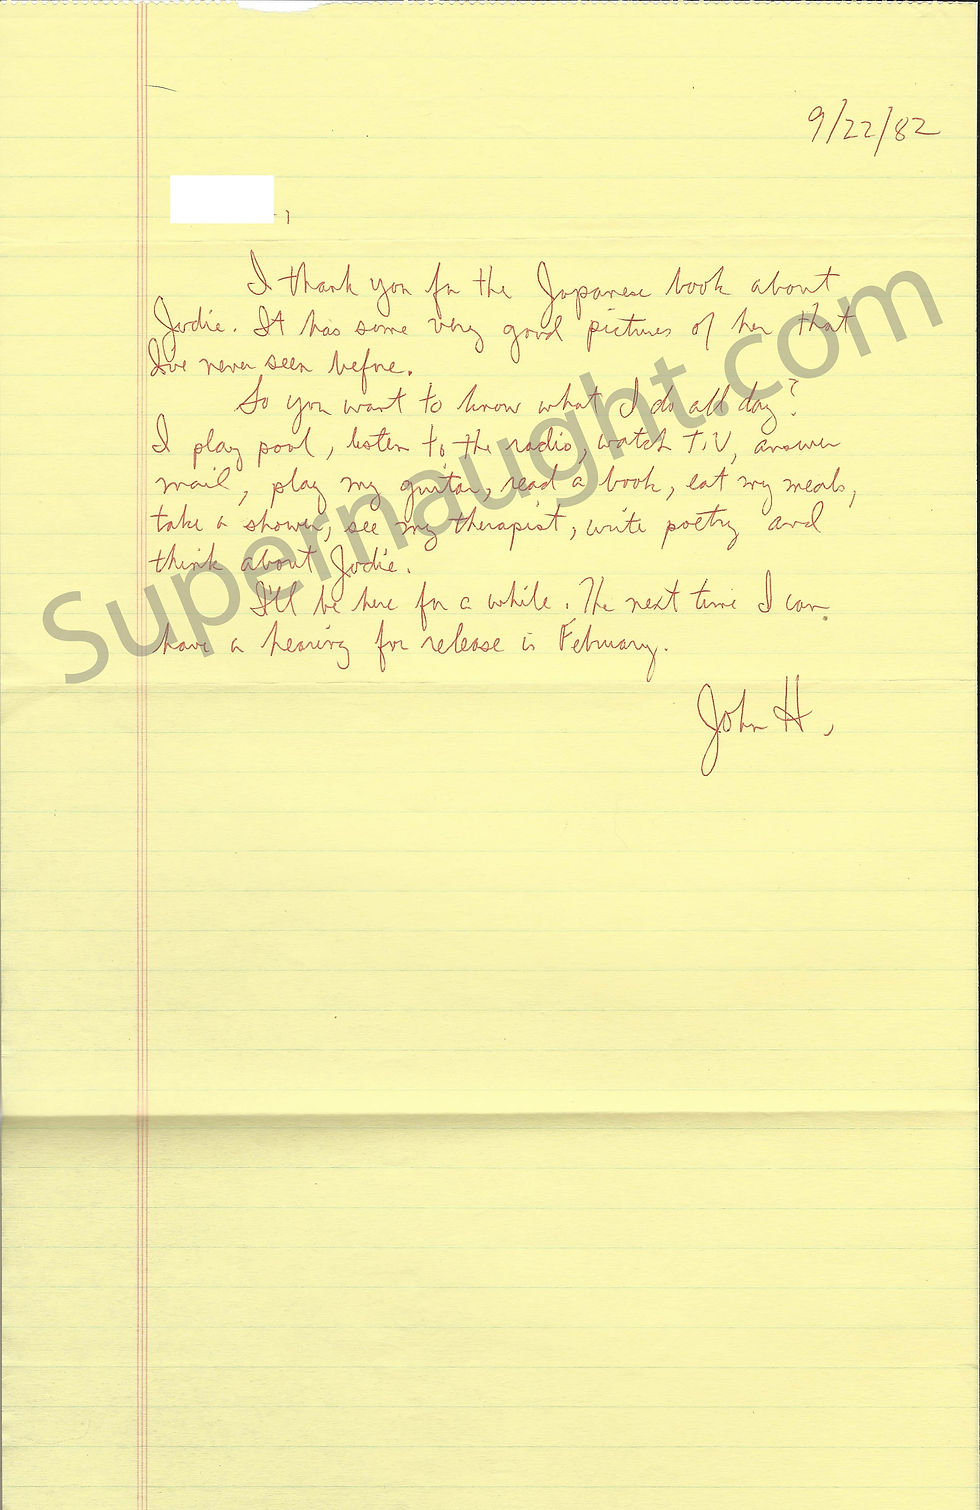 9/22/82
,
I thank you for the Japanese book about
Jodie. It has some very good pictures of her that
I've never seen before.
So you want to know what I do all day?
I play pool, listen to the radio, watch T.V, answer
mail, play my guitar, read a book, eat my meals,
take a shower, see my therapist, write poetry and
think about Jodie.
I'll be here for a while. The next time I can
have a hearing for release is February.
John H.
Supernaught.com